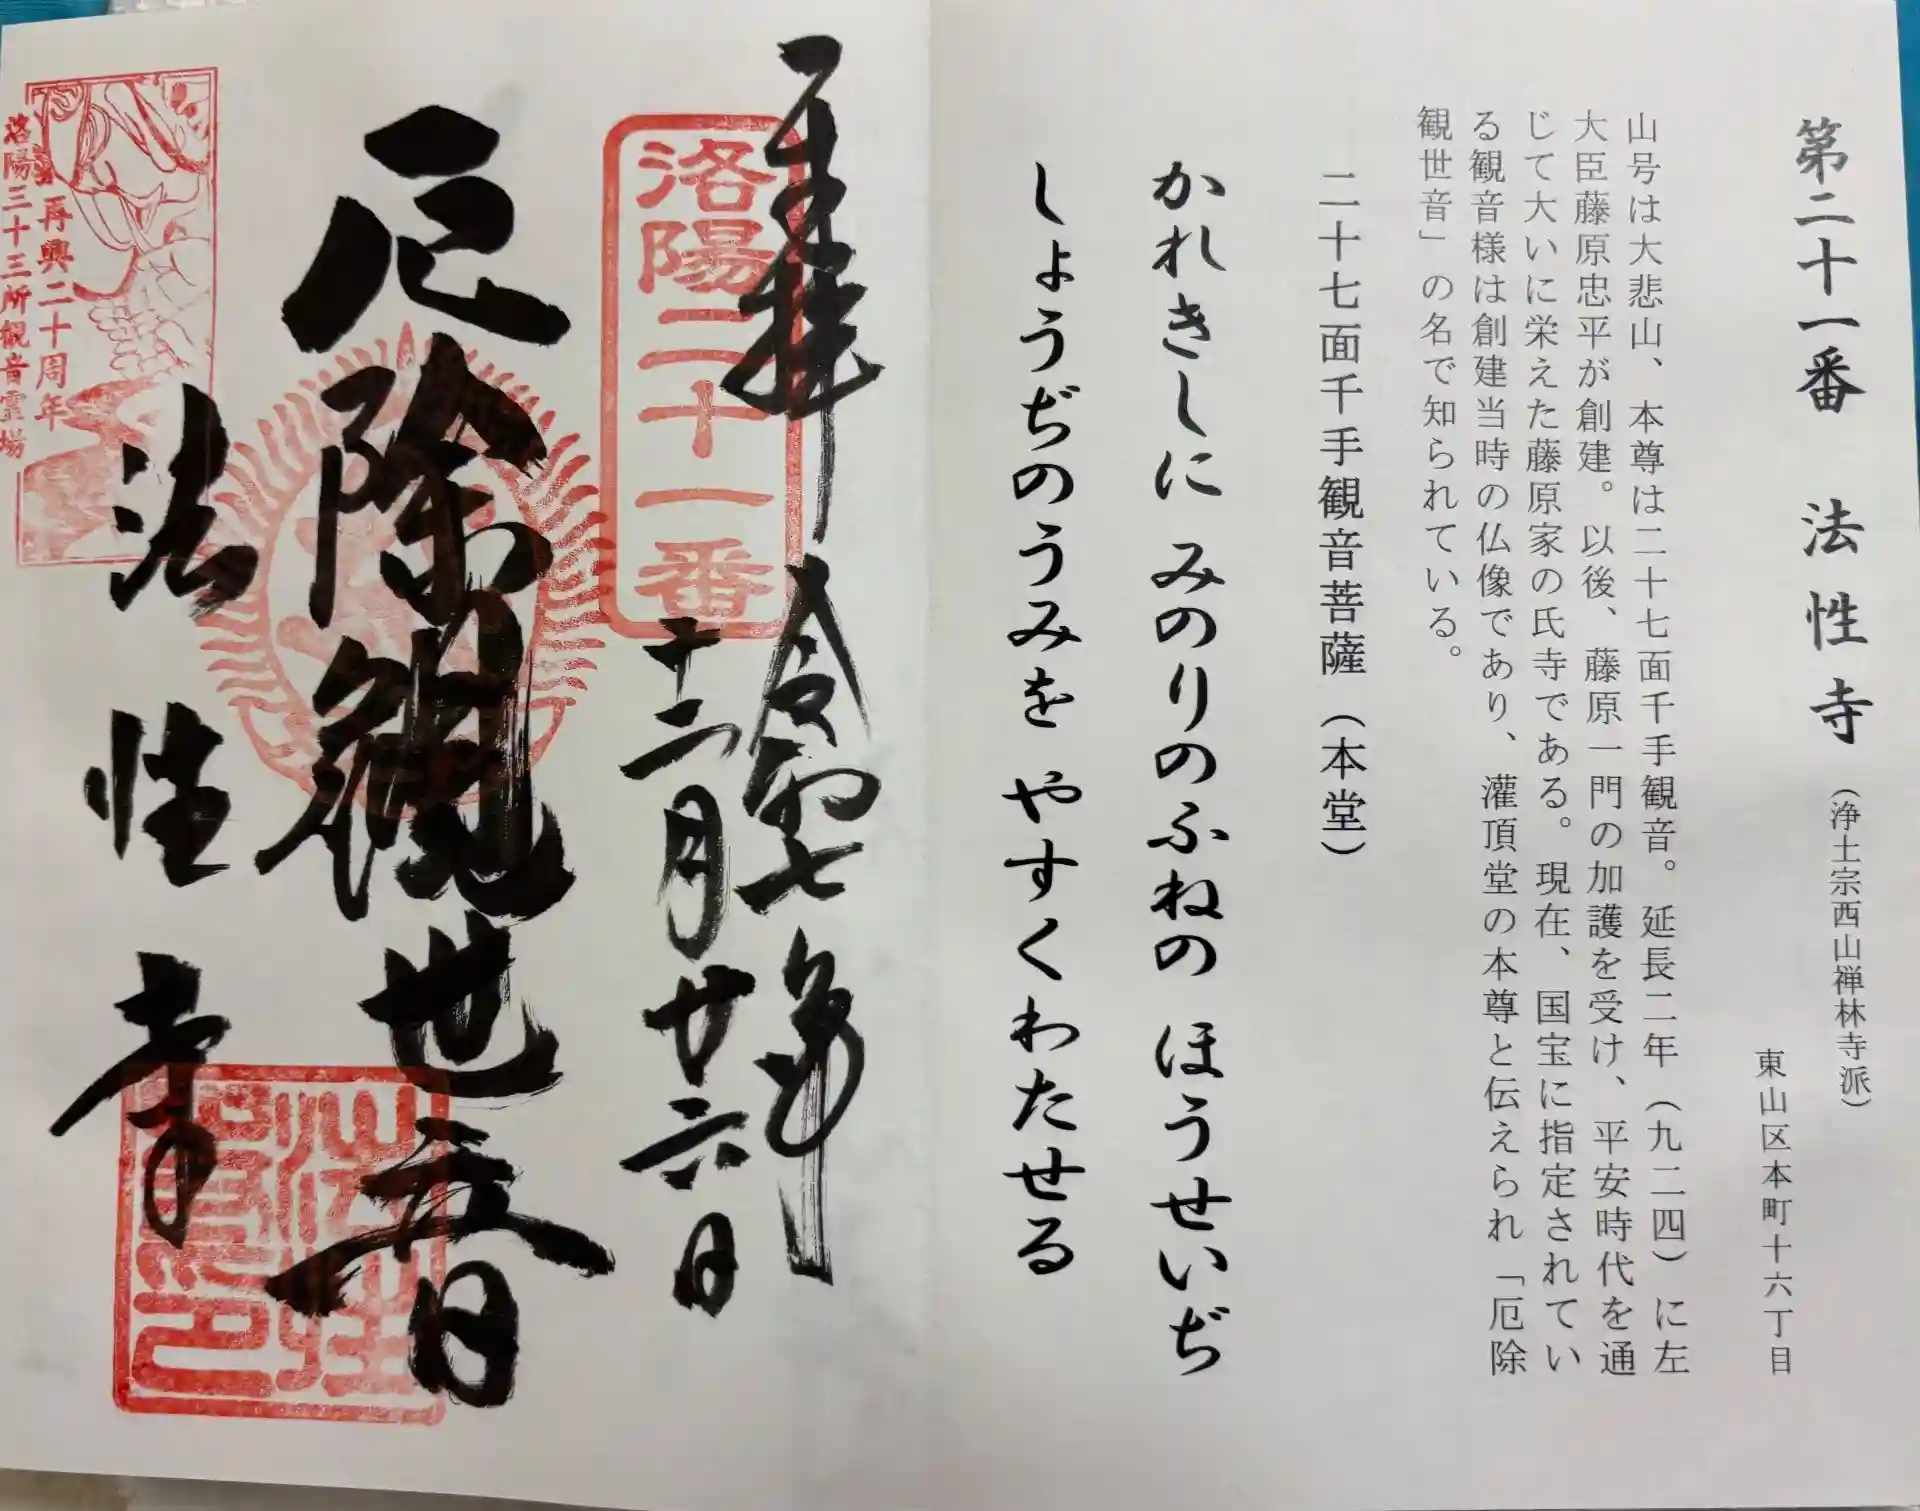 第二十一番　法性寺（浄土宗西山禅林寺派）
東山区本町十六丁目
山号は大悲山、本尊は二十七面千手観音。延長二年（九二四）に左
大臣藤原忠平が創建。以後、藤原一門の加護を受け、平安時代を通
じて大いに栄えた藤原家の氏寺である。現在、国宝に指定されてい
る観音様は創建当時の仏像であり、灌頂堂の本尊と伝えられ「厄除
観世音」の名で知られている。
二十七面千手観音菩薩（本堂）
かれきしに みのりのふねの ほうせいぢ
しょうぢのうみを やすくわたせる
奉拝　令和七年
十二月廿六日
洛陽二十一番
厄除観世音
法性寺
再興二十周年
洛陽三十三所観音霊場